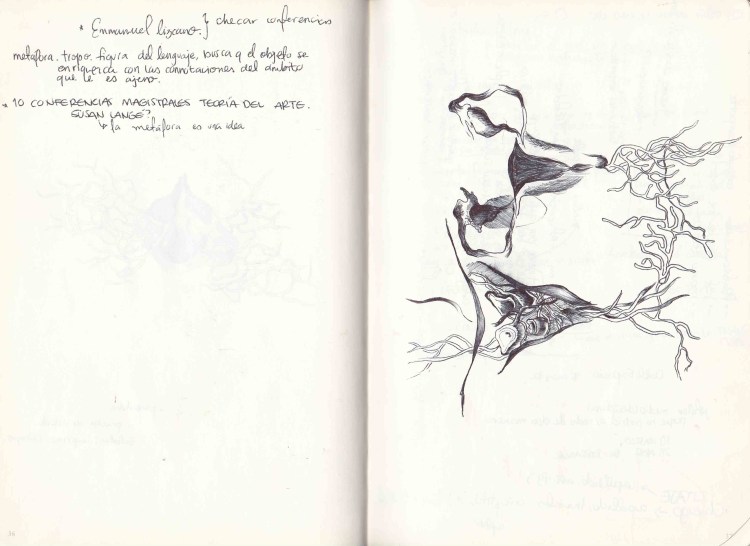 * Emmanuel Lizcano. } checar conferencias
metáfora. tropo. figura del lenguaje, busca q el objeto se
enriquezca con las connotaciones del ámbito
que le es ajeno.
* 10 CONFERENCIAS MAGISTRALES TEORÍA DEL ARTE.
SUSAN LANGE?
↳ la metáfora es una idea